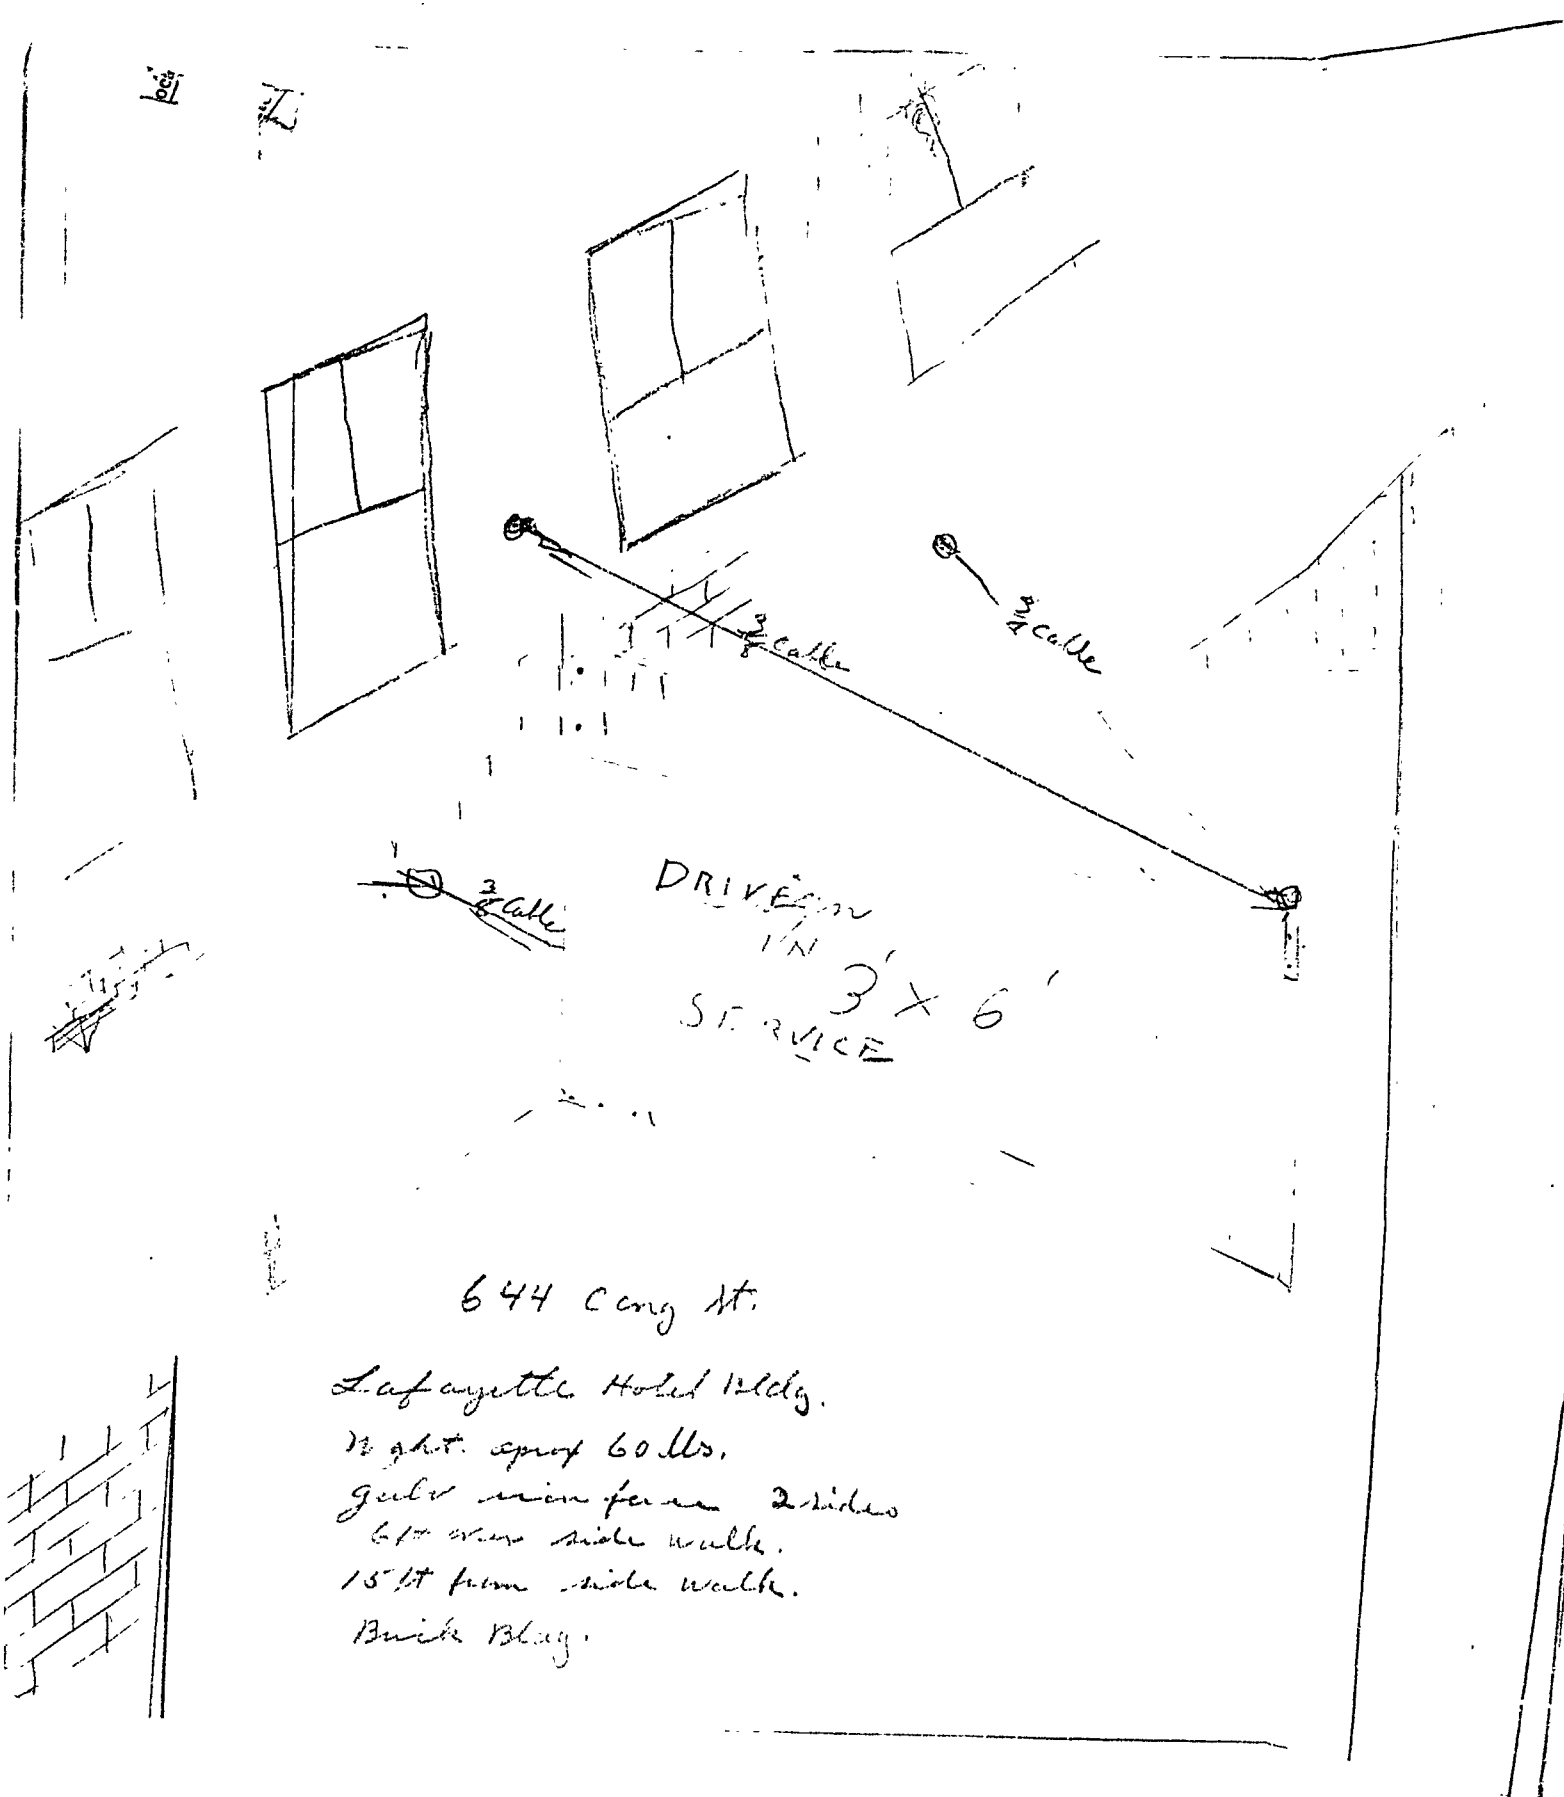 3/8 Cable
3/8 Cable
3/8 Cable
DRIVE
IN
3' X 6'
SERVICE
644 Cong St.
Lafayette Hotel Bldg.
Wght. aprox 60 lbs.
galv iron 2 sides
6 ft over side walk.
15 ft from side walk.
Brick Bldg.